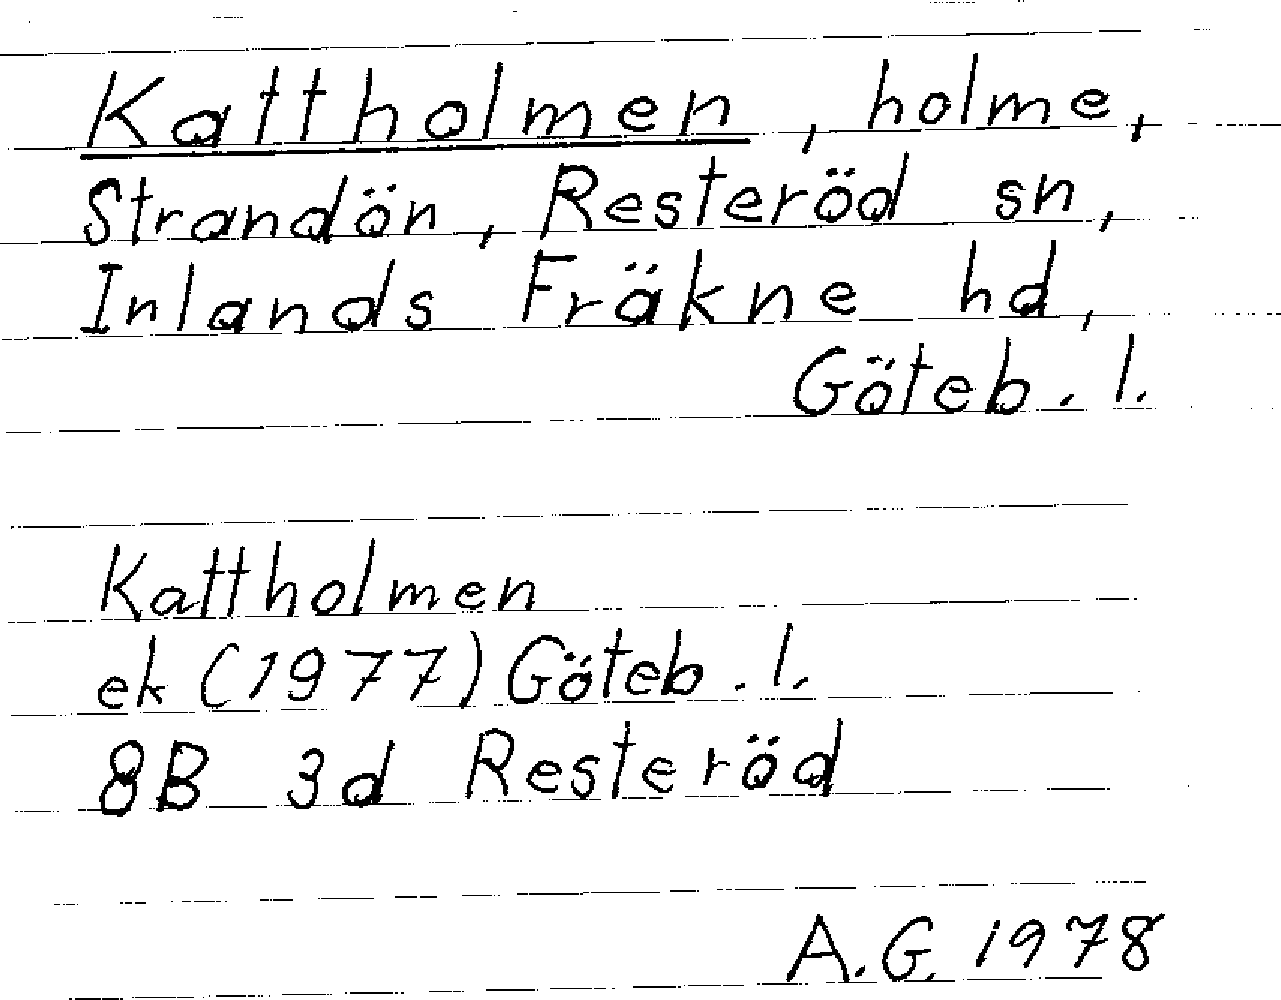 Kattholmen, holme,
Strandön, Resteröd sn,
Inlands Fräkne hd,
Göteb. l.
Kattholmen
ek (1977) Göteb. l.
8B 3d Resteröd
A.G. 1978